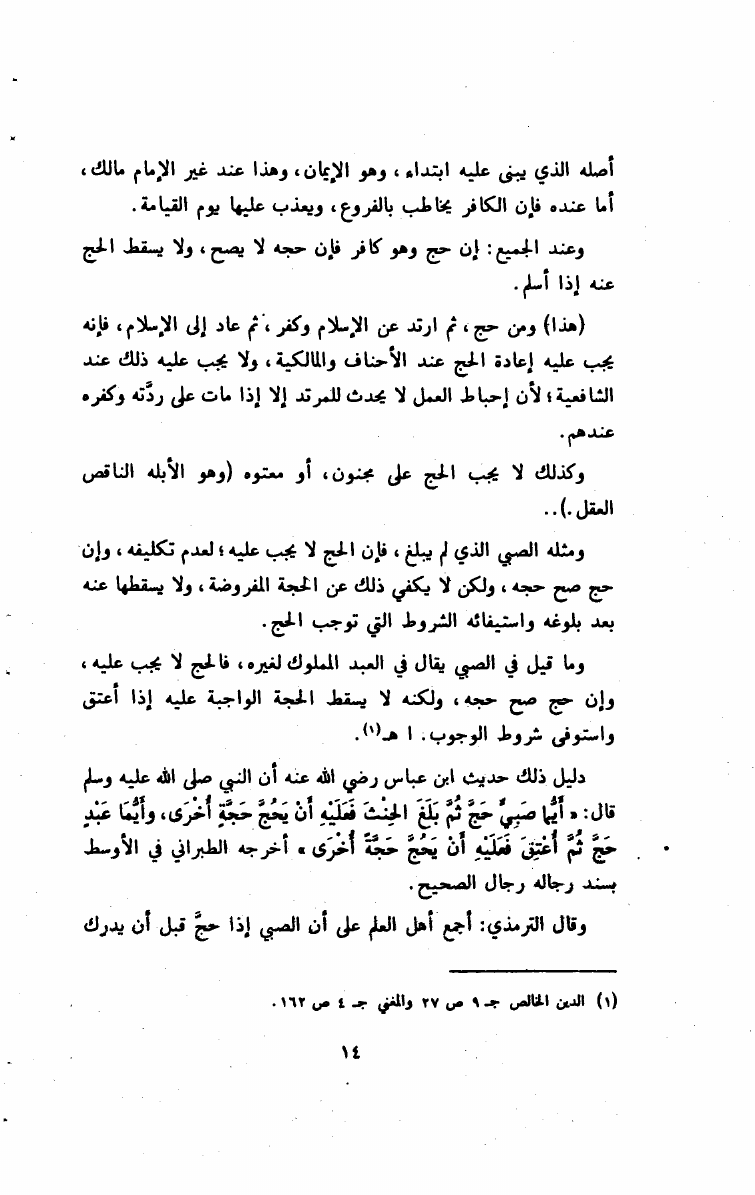 أصله الذي يبنى عليه ابتداء، وهو الإيمان، وهذا عند غير الإمام مالك،
أما عنده فإن الكافر يخاطب بالفروع، ويعذب عليها يوم القيامة.
وعند الجميع: إن حج وهو كافر فإن حجه لا يصح، ولا يسقط الحج
عنه إذا أسلم.
(هذا) ومن حج، ثم ارتد عن الإسلام وكفر، ثم عاد إلى الإسلام، فإنه
يجب عليه إعادة الحج عند الأحناف والمالكية، ولا يجب عليه ذلك عند
الشافعية؛ لأن إحباط العمل لا يحدث للمرتد إلا إذا مات على ردَّته وكفره
عندهم.
وكذلك لا يجب الحج على مجنون، أو معتوه (وهو الأبله الناقص
العقل.)..
ومثله الصبي الذي لم يبلغ، فإن الحج لا يجب عليه؛ لعدم تكليفه، وإن
حج صح حجه، ولكن لا يكفي ذلك عن الحجة المفروضة، ولا يسقطها عنه
بعد بلوغه واستيفائه الشروط التي توجب الحج.
وما قيل في الصبي يقال في العبد المملوك لغيره، فالحج لا يجب عليه،
وإن حج صح حجه، ولكنه لا يسقط الحجة الواجبة عليه إذا أعتق
واستوفى شروط الوجوب. ا هـ(١).
دليل ذلك حديث ابن عباس رضي الله عنه أن النبي صلى الله عليه وسلم
قال: «أَيُّمَا صَبِيٍّ حَجَّ ثُمَّ بَلَغَ الحِنْثَ فَعَلَيْهِ أَنْ يَحُجَّ حَجَّةٍ أُخْرَى، وأَيُّمَا عَبْدٍ
حَجَّ ثُمَّ أُعْتِقَ فَعَلَيْهِ أَنْ يَحُجَّ حَجَّةً أُخْرَى» أخرجه الطبراني في الأوسط
بسند رجاله رجال الصحيح.
وقال الترمذي: أجمع أهل العلم على أن الصبي إذا حجَّ قبل أن يدرك
(١) الدين الخالص جـ ٩ ص ٢٧ والمغني جـ ٤ ص ١٦٢.
١٤